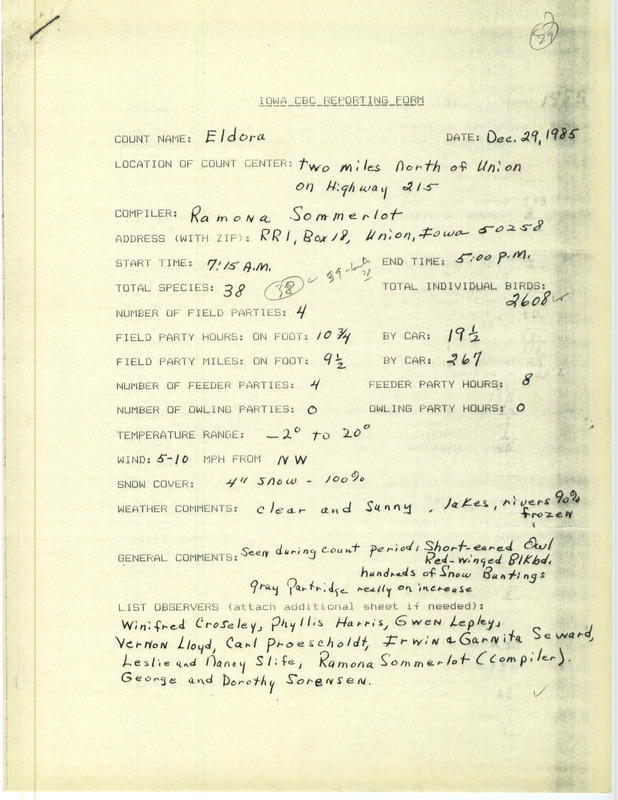 IOWA CBC REPORTING FORM
COUNT NAME: Eldora DATE: Dec. 29, 1985
LOCATION OF COUNT CENTER: two miles North of Union
on Highway 215
COMPILER: Ramona Sommerlot
ADDRESS (WITH ZIP): RR1, Box 18, Union, Iowa 50258
START TIME: 7:15 A.M. END TIME: 5:00 P.M.
TOTAL SPECIES: 38 38 39- TOTAL INDIVIDUAL BIRDS:
2608
NUMBER OF FIELD PARTIES: 4
FIELD PARTY HOURS: ON FOOT: 10 3/4 BY CAR: 19 1/2
FIELD PARTY MILES: ON FOOT: 9 1/2 BY CAR: 267
NUMBER OF FEEDER PARTIES: 4 FEEDER PARTY HOURS: 8
NUMBER OF OWLING PARTIES: 0 OWLING PARTY HOURS: 0
TEMPERATURE RANGE: -2° to 20°
WIND: 5-10 MPH FROM NW
SNOW COVER: 4" snow - 100%
WEATHER COMMENTS: clear and sunny, lakes, rivers 90%
frozen
GENERAL COMMENTS: Seen during count period: Short-eared Owl
Red-winged Blkbd.
hundreds of Snow Buntings
gray Partridge really on increase
LIST OBSERVERS (attach additional sheet if needed):
Winifred Croseley, Phyllis Harris, Gwen Lepley,
Vernon Lloyd, Carl Proescholdt, Irwin & Garnita Seward,
Leslie and Nancy Slife, Ramona Sommerlot (compiler).
George and Dorothy Sorensen.